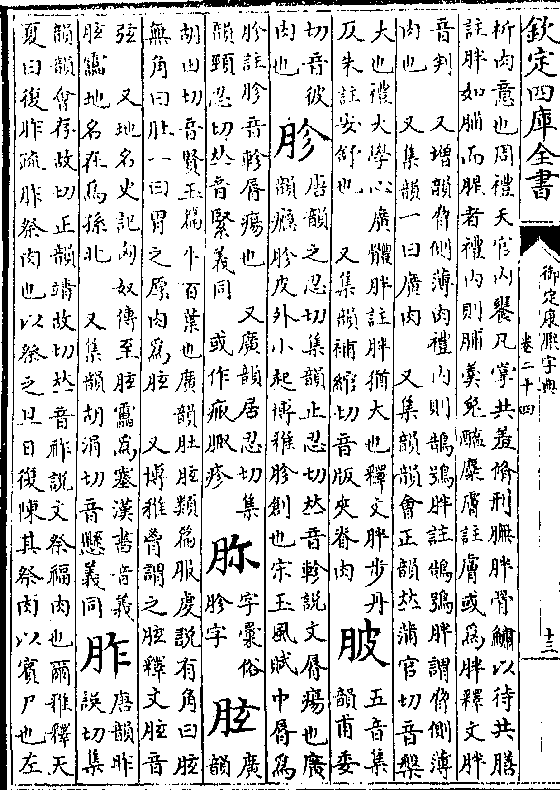 欽定四庫全書
御定康熙字典
卷二十四
十三
析肉意也周禮天官內饔凡掌共羞脩刑膴胖骨鱐以待共膳
註胖如脯而腥者禮內則脯羹兔醢麋膚註膚或爲胖釋文胖
音判　又增韻脅側薄肉禮內則鵠鴞胖註鵠鴞胖謂脅側薄
肉也　又集韻一曰廣肉　又集韻韻會正韻𠀤蒲官切音槃
大也禮大學心廣體胖註胖猶大也釋文胖步丹
反朱註安舒也　又集韻補綰切音版夾脊肉
䏢
五音集
韻甫委
切音彼
肉也
胗
唐韻之忍切集韻止忍切𠀤音軫說文脣瘍也廣
韻癮胗皮外小起博雅胗創也宋玉風賦中脣爲
胗註胗音軫脣瘍也　又廣韻居忍切集
韻頸忍切𠀤音緊義同　或作疹
字彙俗
胗字
胘
廣
韻
胡田切音賢玉篇牛百葉也廣韻肚胘類篇服虔說有角曰胘
無角曰肚一曰胃之厚肉爲胘　又博雅膋謂之胘釋文胘音
弦　又地名史記匈奴傳至胘靁爲塞漢書音義
胘靁地名在烏孫北　又集韻胡涓切音懸義同
胙
唐韻昨
誤切集
韻韻會存故切正韻靖故切𠀤音祚說文祭福肉也爾雅釋天
夏曰復胙疏胙祭肉也以祭之旦日復陳其祭肉以賓尸也左